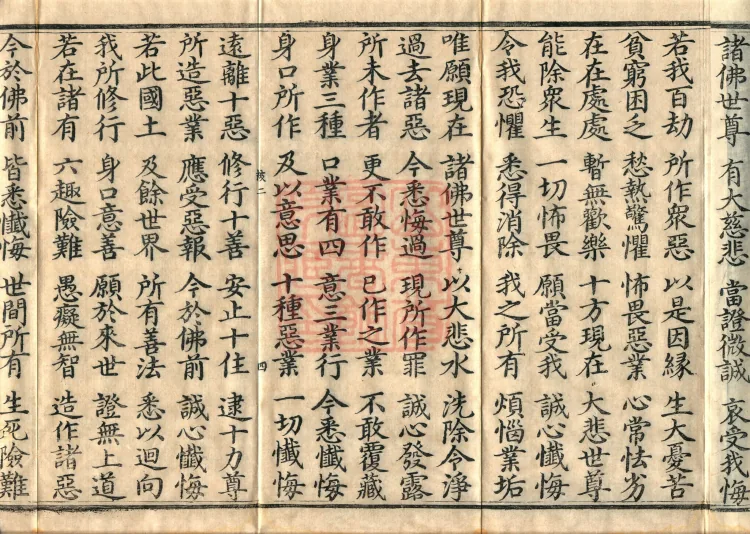 諸佛世尊 有大慈悲 當證微誠 哀受我悔
若我百劫 所作衆惡 以是因緣 生大憂苦
貧窮困乏 愁熱驚懼 怖畏惡業 心常怯劣
在在處處 暫無歡樂 十方現在 大悲世尊
能除衆生 一切怖畏 願當受我 誠心懺悔
令我恐懼 悉得消除 我之所有 煩惱業垢
唯願現在 諸佛世尊 以大悲水 洗除令淨
過去諸惡 今悉悔過 現所作罪 誠心發露
所未作者 更不敢作 已作之業 不敢覆藏
身業三種 口業有四 意三業行 今悉懺悔
身口所作 及以意思 十種惡業 一切懺悔
二 四
遠離十惡 修行十善 安止十住 逮十力尊
所造惡業 應受惡報 今於佛前 誠心懺悔
若此國土 及餘世界 所有善法 悉以迴向
我所修行 身口意善 願於來世 證無上道
若在諸有 六趣險難 愚癡無智 造作諸惡
今於佛前 皆悉懺悔 世間所有 生死險難